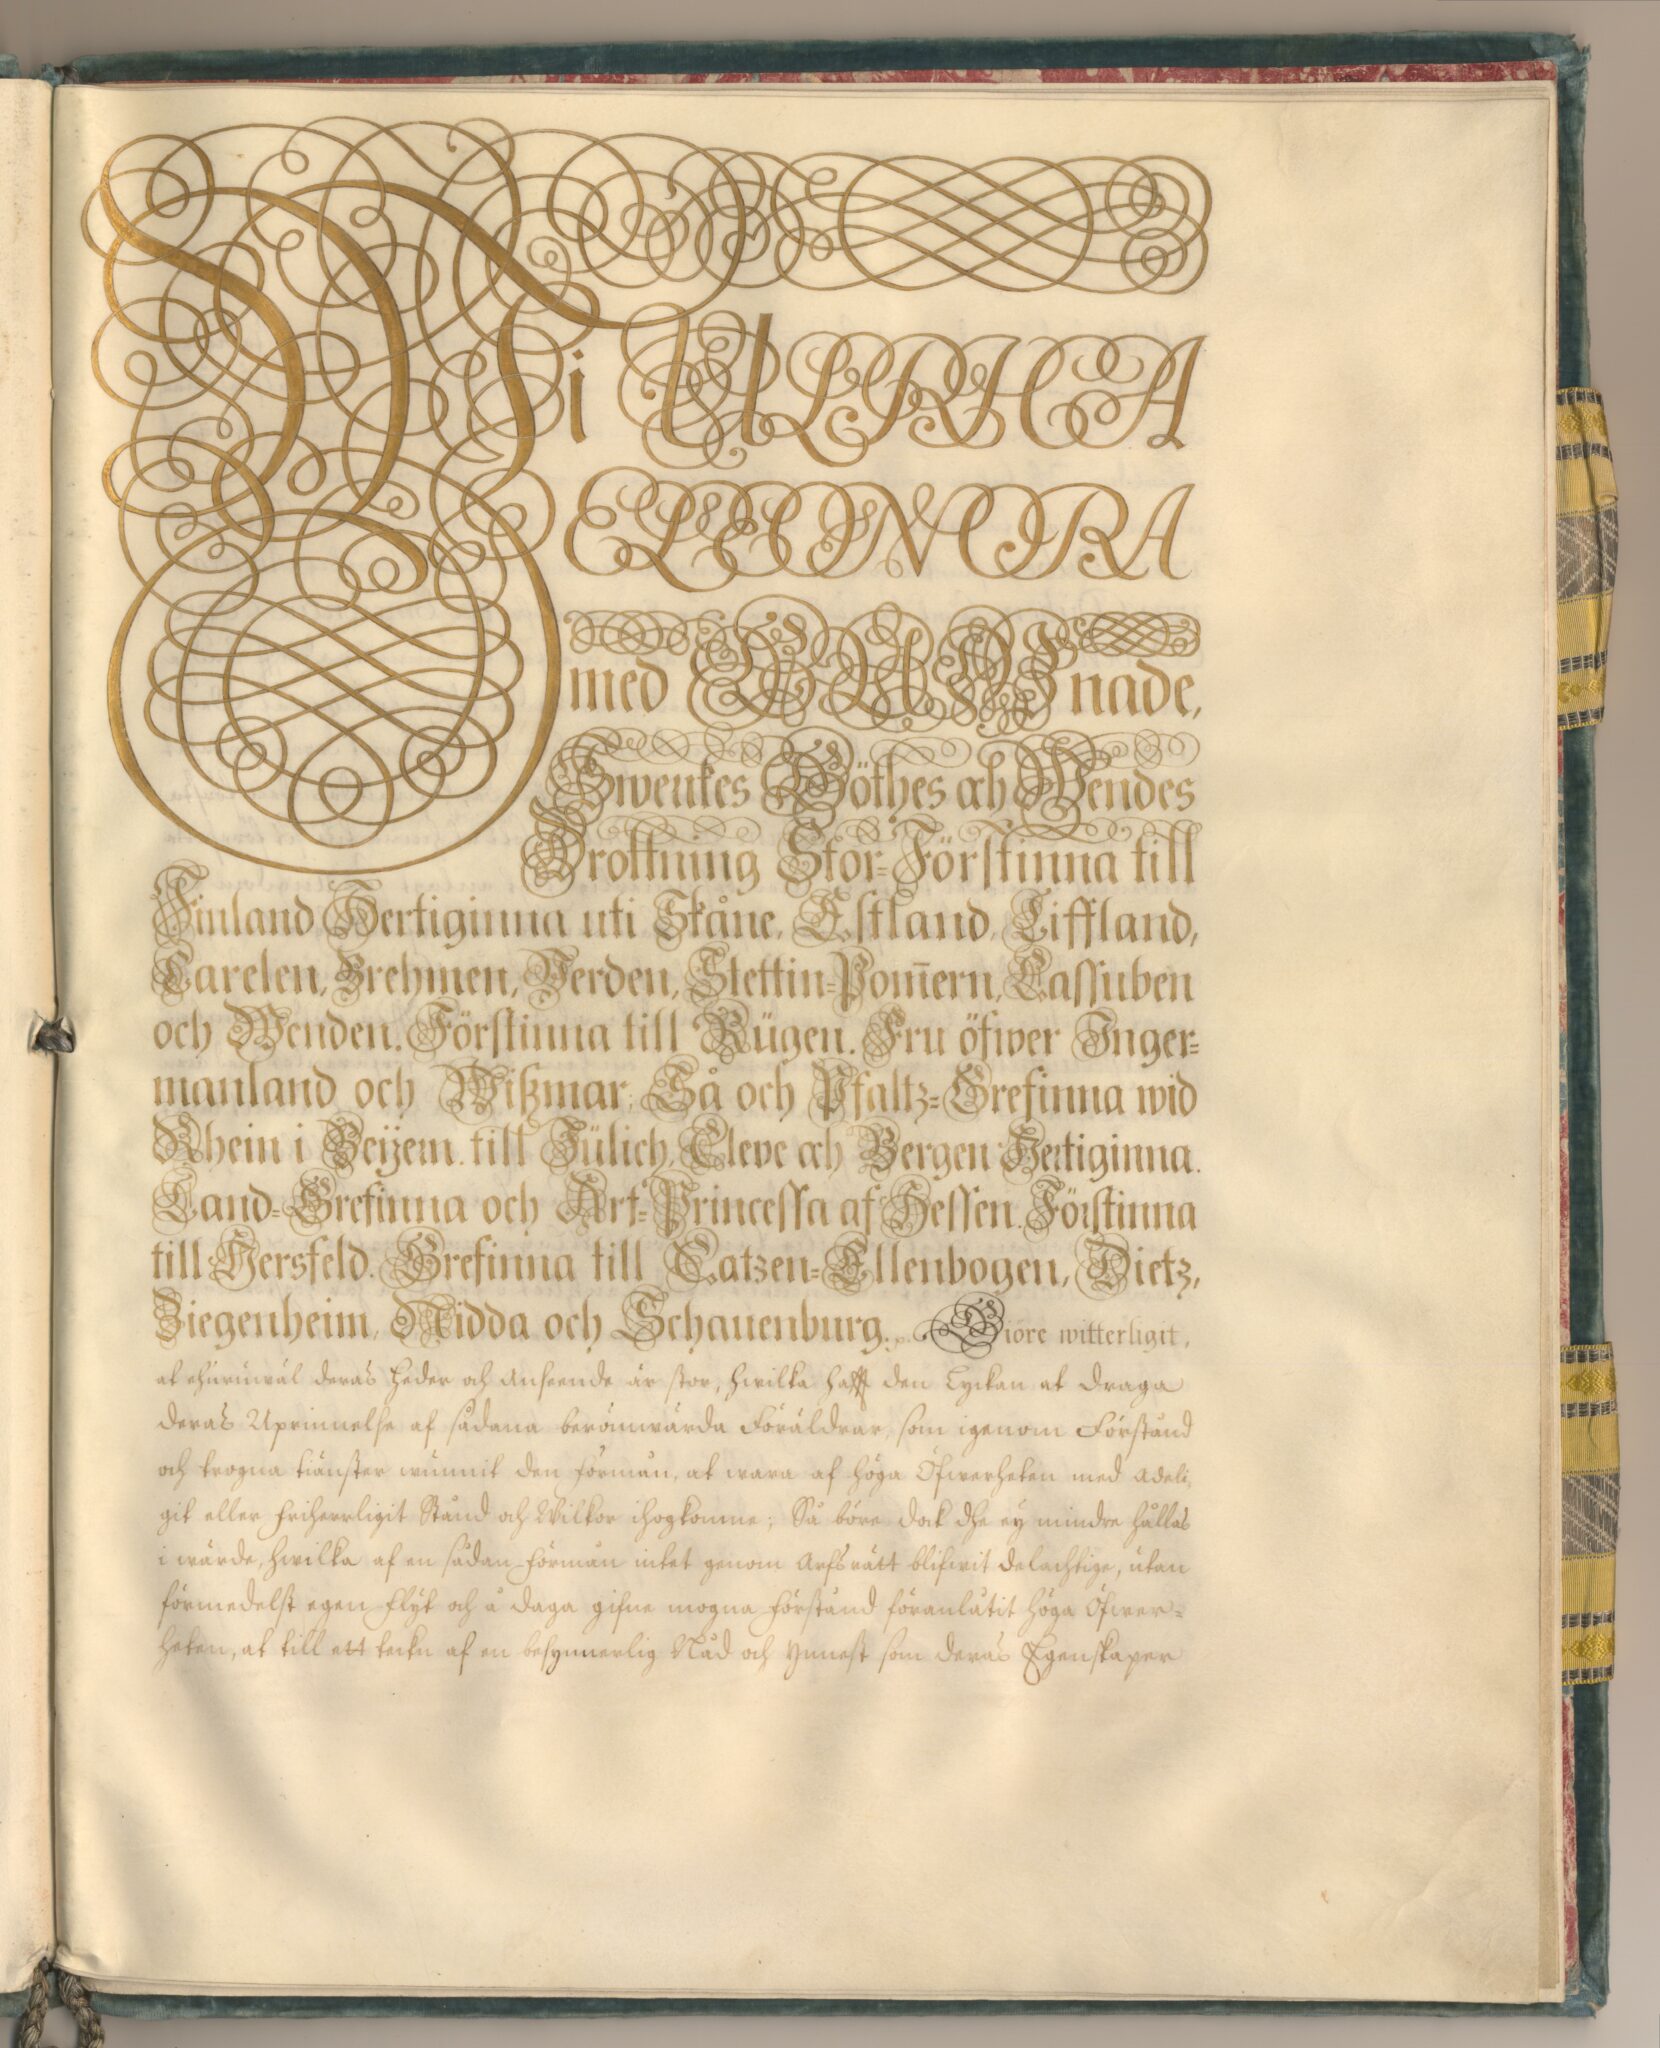 Wi ULRICA
ELEONORA
med GUDZ nade,
Swerikes Göthes och Wendes
Drottning Stor-Förstinna till
Finland, Hertiginna uti Skåne, Estland, Liffland,
Carelen, Brehmen, Verden, Stettin-Pom̄ern, Cassuben
och Wenden, Förstinna till Rügen, Fru öfwer Inger-
manland och Wißmar; Så och Pfaltz-Grefinna wid
Rhein i Beÿern, till Jülich, Cleve och Bergen Hertiginna.
Land-Grefinna och Arf-Princessa af Hessen, Förstinna
till Hersfeld, Grefinna till Catzen-Ellenbogen, Dietz,
Ziegenheim, Nidda och Schauenburg. Giöre witterligit,
at ehuruwäl deras Heder och Anseende är stor, hwilka hafft den Lyckan at draga
deras Uprinnelse af sådana berömwärda Föräldrar, som igenom Förstånd
och trogna tiänster wunnit den förmån, at wara af höga Öfwerheten med Adeli-
git eller Friherrligit Stånd och Wilkor ihogkomne; Så böre dock dhe ey mindre hållas
i wärde, hwilka af en sådan Förmån intet genom Arfsrätt blifwit delachtige, utan
förmedelst egen flijt och å daga gifne mogna Förstånd föranlåtit höga Öfwer-
heten, at till ett tekn af en besynnerlig Nåd och Ynnest som deras Egenskaper